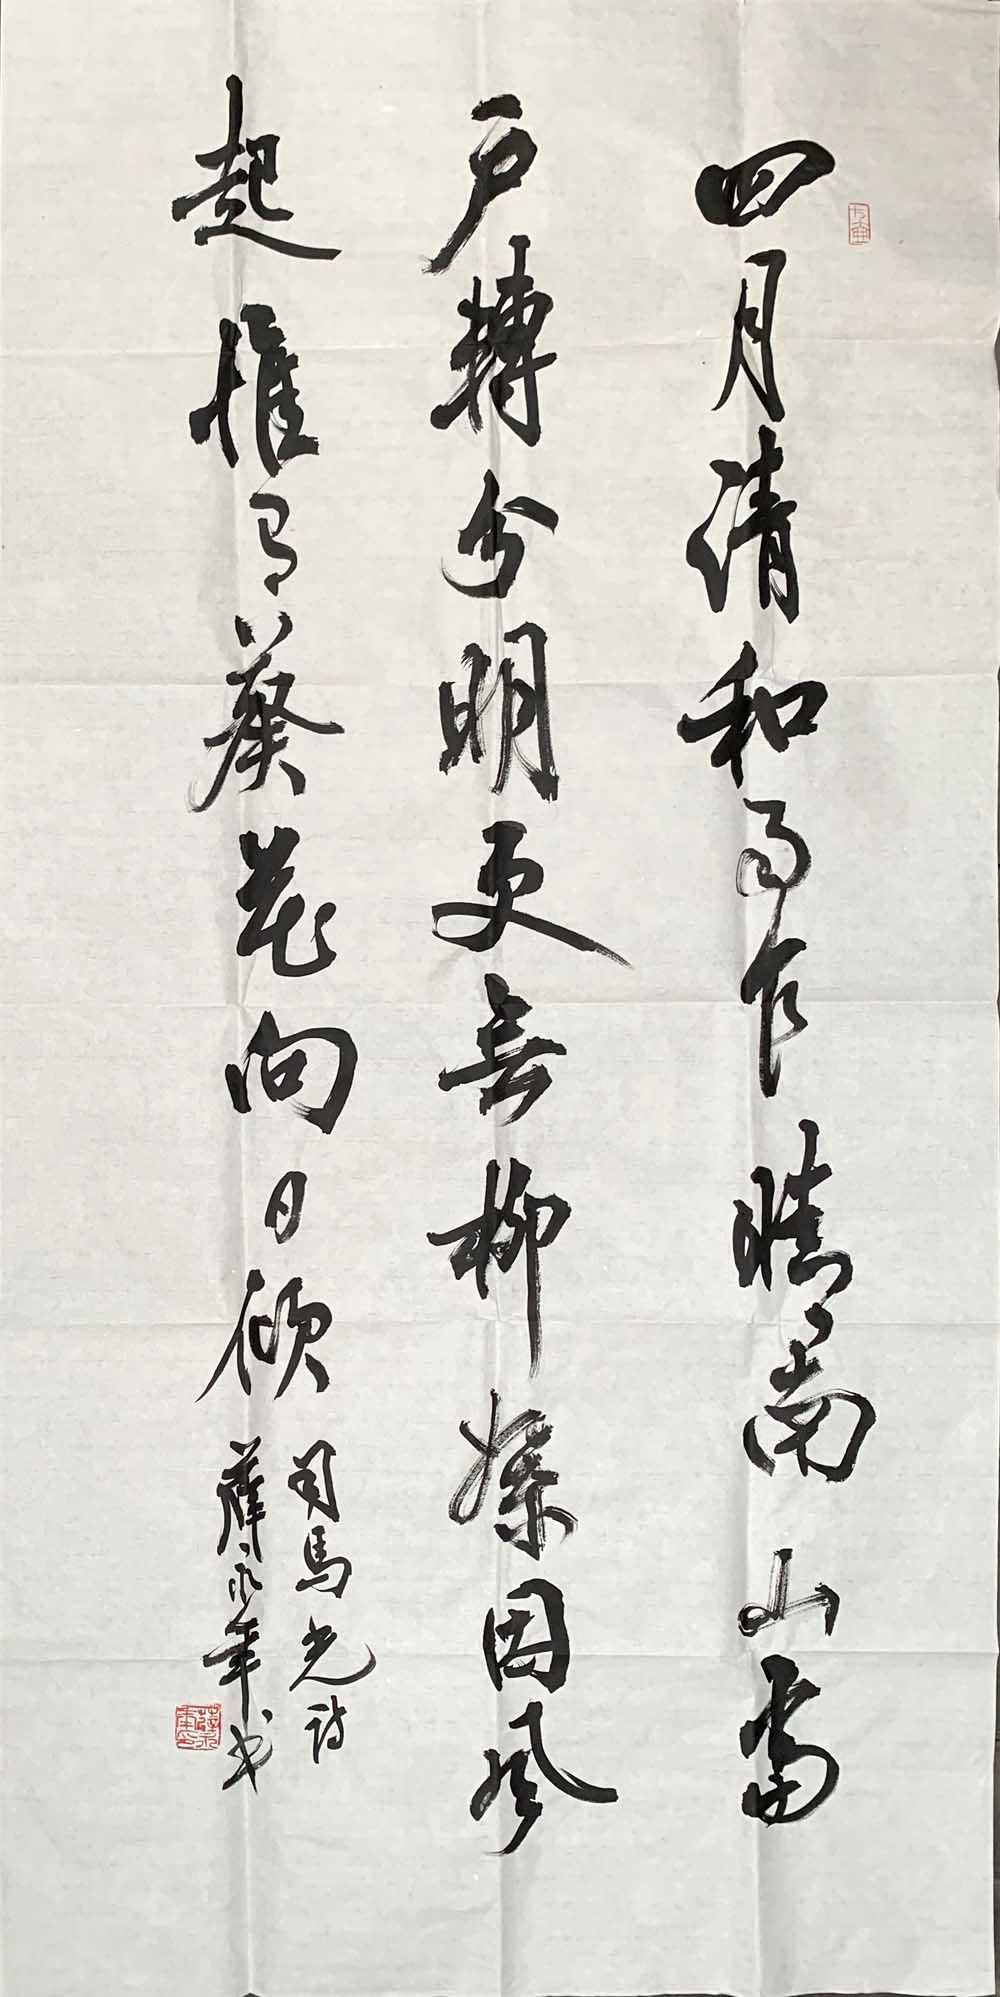 四月清和雨乍晴南山當
户轉分明更無柳絮因風
起惟有葵花向日傾
司馬光詩
薛永年书